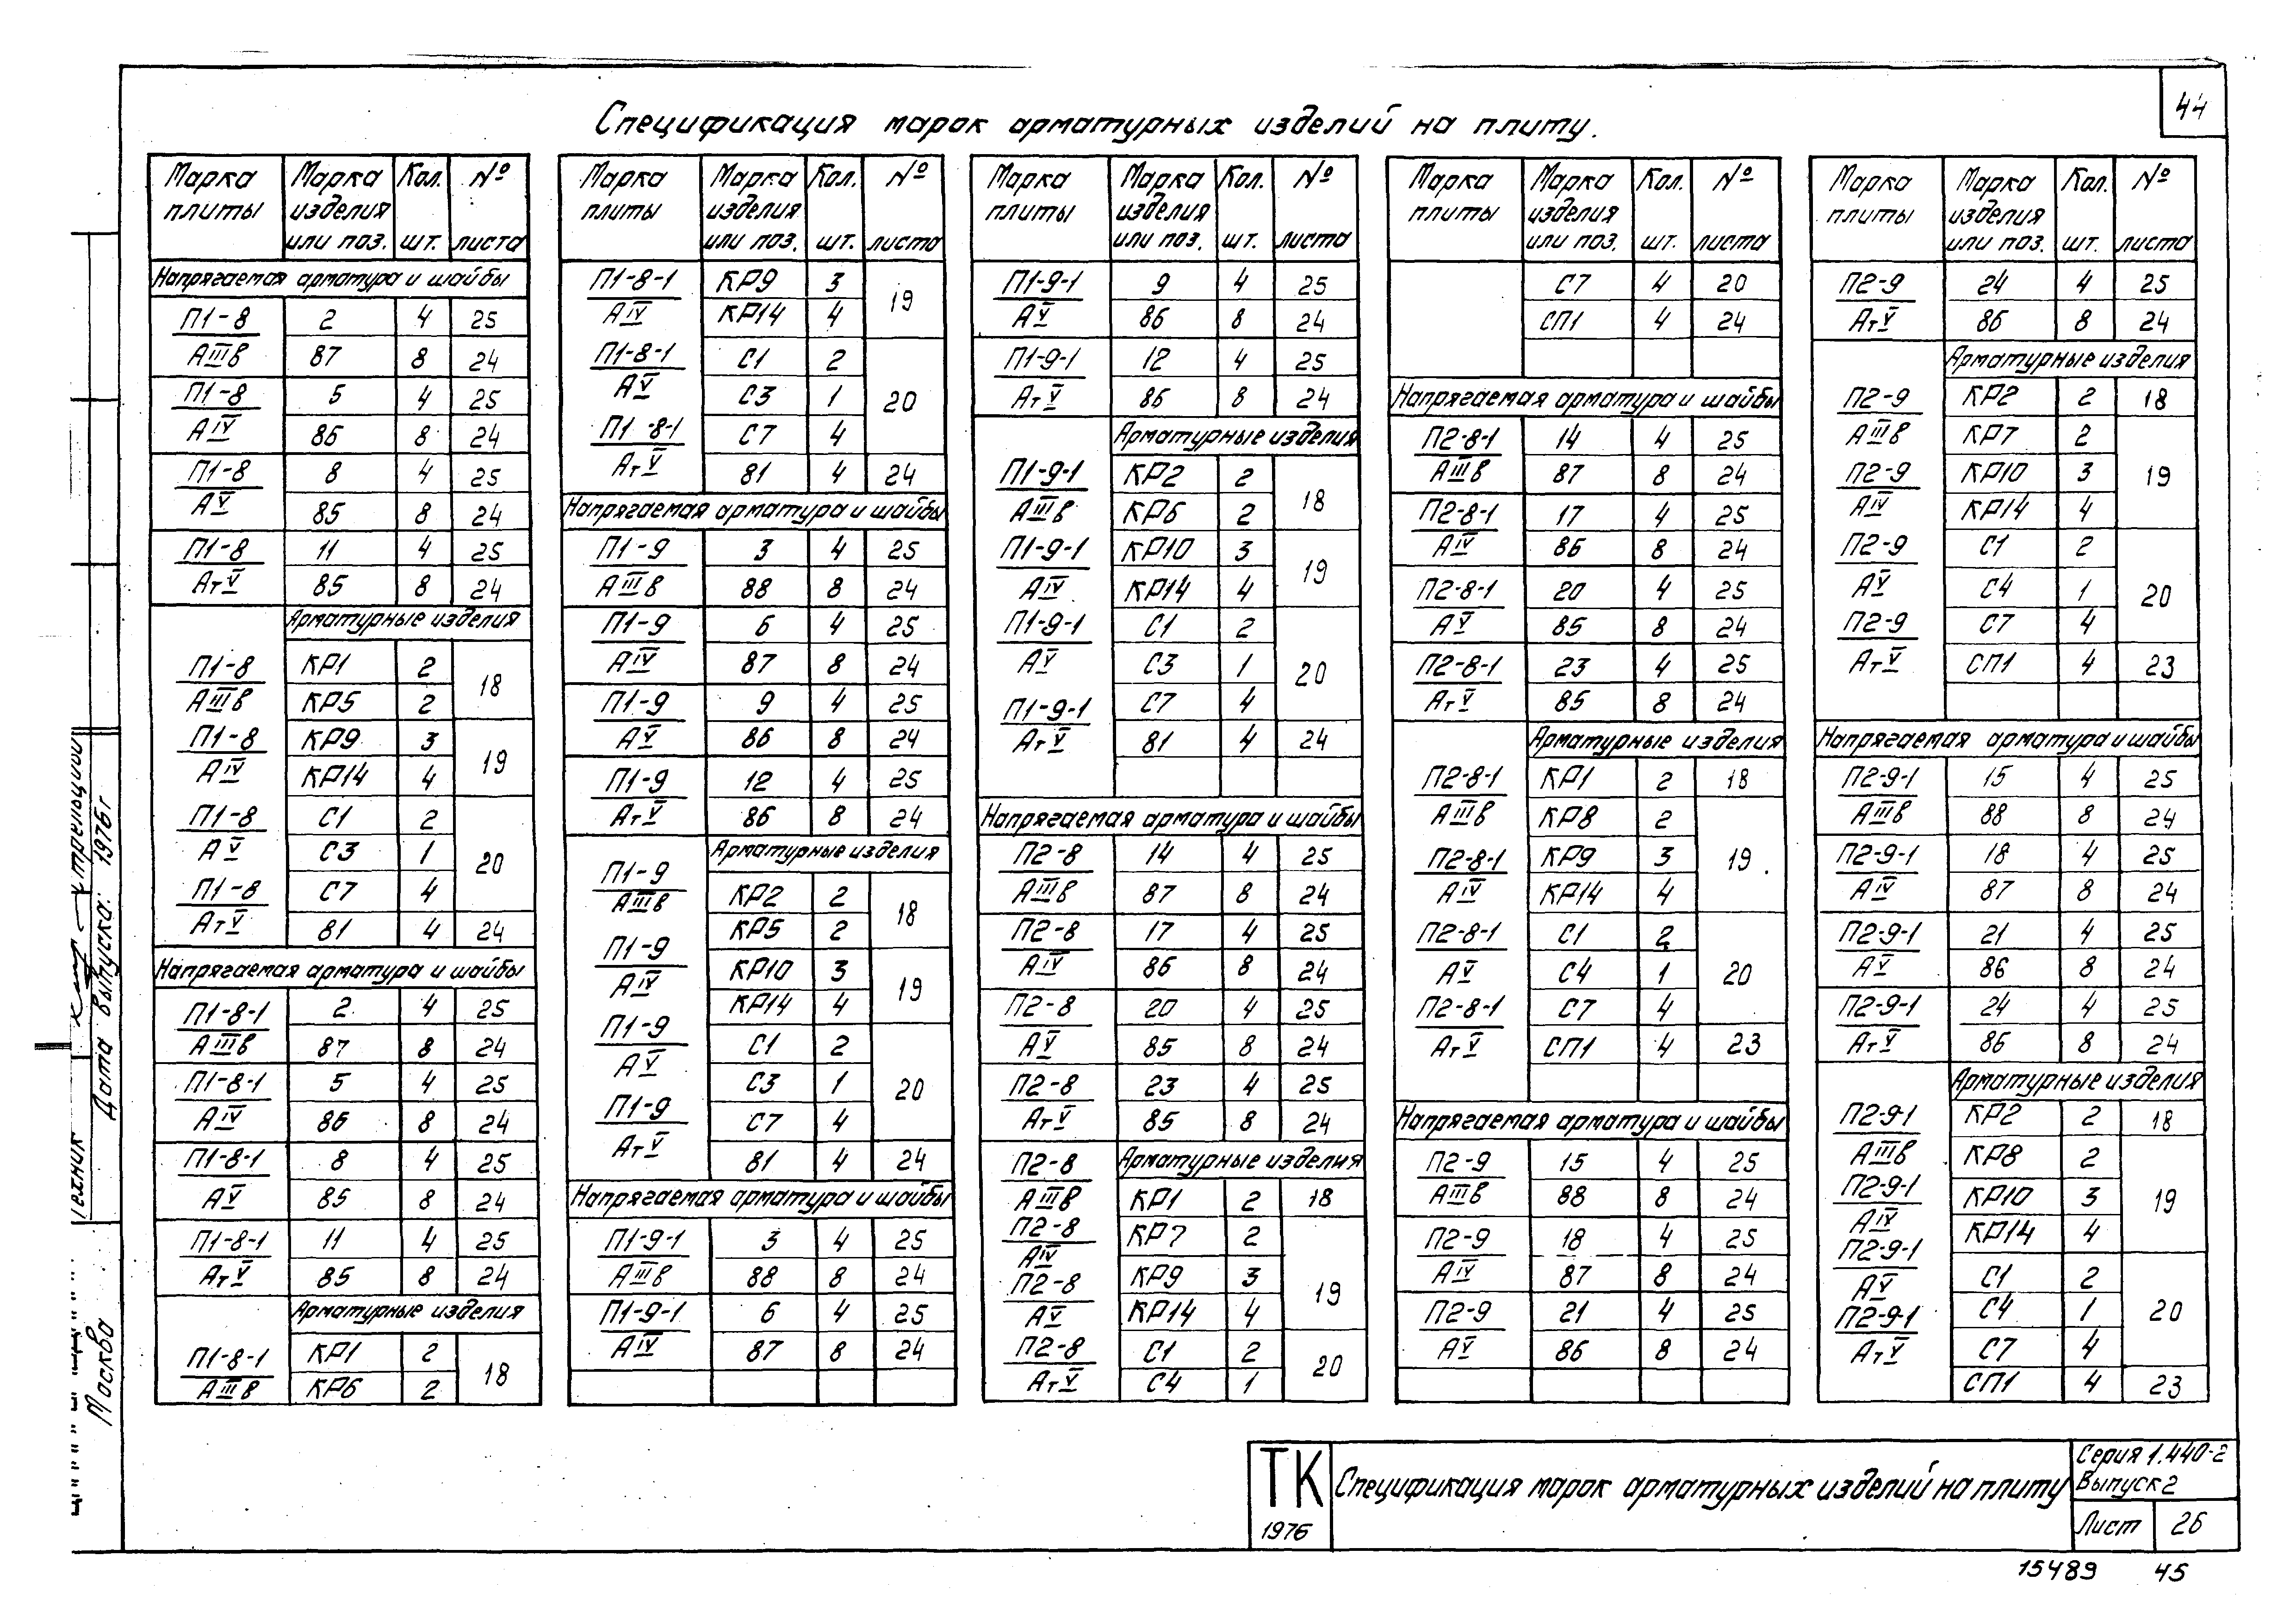 44
Спецификация марок арматурных изделий на плиту.
Марка плиты Марка изделия или поз. Кол. шт. № листа
Напрягаемая арматура и шайбы
П1-8 2 4 25
АIIIв 87 8 24
П1-8 5 4 25
АIV 86 8 24
П1-8 8 4 25
АV 85 8 24
П1-8 11 4 25
АтV 85 8 24
Арматурные изделия
П1-8 КР1 2 18
АIIIв КР5 2
П1-8 КР9 3 19
АIV КР14 4
П1-8 С1 2 20
АV С3 1
П1-8 С7 4
АтV 81 4 24
Напрягаемая арматура и шайбы
П1-8-1 2 4 25
АIIIв 87 8 24
П1-8-1 5 4 25
АIV 86 8 24
П1-8-1 8 4 25
АV 85 8 24
П1-8-1 11 4 25
АтV 85 8 24
Арматурные изделия
П1-8-1 КР1 2 18
АIIIв КР6 2
Марка плиты Марка изделия или поз. Кол. шт. № листа
П1-8-1 КР9 3 19
АIV КР14 4
П1-8-1 С1 2 20
АV С3 1
П1-8-1 С7 4
АтV 81 4 24
Напрягаемая арматура и шайбы
П1-9 3 4 25
АIIIв 88 8 24
П1-9 6 4 25
АIV 87 8 24
П1-9 9 4 25
АV 86 8 24
П1-9 12 4 25
АтV 86 8 24
Арматурные изделия
П1-9 АIIIв КР2 2 18
КР5 2
П1-9 КР10 3 19
АIV КР14 4
П1-9 С1 2 20
АV С3 1
П1-9 С7 4
АтV 81 4 24
Напрягаемая арматура и шайбы
П1-9-1 3 4 25
АIIIв 88 8 24
П1-9-1 6 4 25
АIV 87 8 24
Марка плиты Марка изделия или поз. Кол. шт. № листа
П1-9-1 9 4 25
АV 86 8 24
П1-9-1 12 4 25
АтV 86 8 24
Арматурные изделия
П1-9-1 КР2 2 18
АIIIв КР6 2
П1-9-1 КР10 3 19
АIV КР14 4
П1-9-1 С1 2 20
АV С3 1
П1-9-1 С7 4
АтV 81 4 24
Напрягаемая арматура и шайбы
П2-8 14 4 25
АIIIв 87 8 24
П2-8 17 4 25
АIV 86 8 24
П2-8 20 4 25
АV 85 8 24
П2-8 23 4 25
АтV 85 8 24
П2-8 Арматурные изделия
АIIIв КР1 2 18
П2-8 КР7 2 19
АIV
П2-8 КР9 3
АV КР14 4
П2-8 С1 2 20
АтV С4 1
Марка плиты Марка изделия или поз. Кол. шт. № листа
С7 4 20
СП1 4 24
Напрягаемая арматура и шайбы
П2-8-1 14 4 25
АIIIв 87 8 24
П2-8-1 17 4 25
АIV 86 8 24
П2-8-1 20 4 25
АV 85 8 24
П2-8-1 23 4 25
АтV 85 8 24
Арматурные изделия
П2-8-1 КР1 2 18
АIIIв КР8 2 19
П2-8-1 КР9 3
АIV КР14 4
П2-8-1 С1 2 20
АV С4 1
П2-8-1 С7 4
АтV СП1 4 23
Напрягаемая арматура и шайбы
П2-9 15 4 25
АIIIв 88 8 24
П2-9 18 4 25
АIV 87 8 24
П2-9 21 4 25
АV 86 8 24
Марка плиты Марка изделия или поз. Кол. шт. № листа
П2-9 24 4 25
АтV 86 8 24
Арматурные изделия
П2-9 КР2 2 18
АIIIв КР7 2 19
П2-9 КР10 3
АIV КР14 4
П2-9 С1 2 20
АV С4 1
П2-9 С7 4
АтV СП1 4 23
Напрягаемая арматура и шайбы
П2-9-1 15 4 25
АIIIв 88 8 24
П2-9-1 18 4 25
АIV 87 8 24
П2-9-1 21 4 25
АV 86 8 24
П2-9-1 24 4 25
АтV 86 8 24
Арматурные изделия
П2-9-1 КР2 2 18
АIIIв КР8 2 19
П2-9-1 КР10 3
АIV КР14 4
П2-9-1
АV С1 2 20
П2-9-1 С4 1
АтV С7 4
СП1 4 23
Дата выпуска: 1976г
Москва
ТК
1976
Спецификация марок арматурных изделий на плиту
Серия 1.440-2
Выпуск 2
Лист 26
15489 45